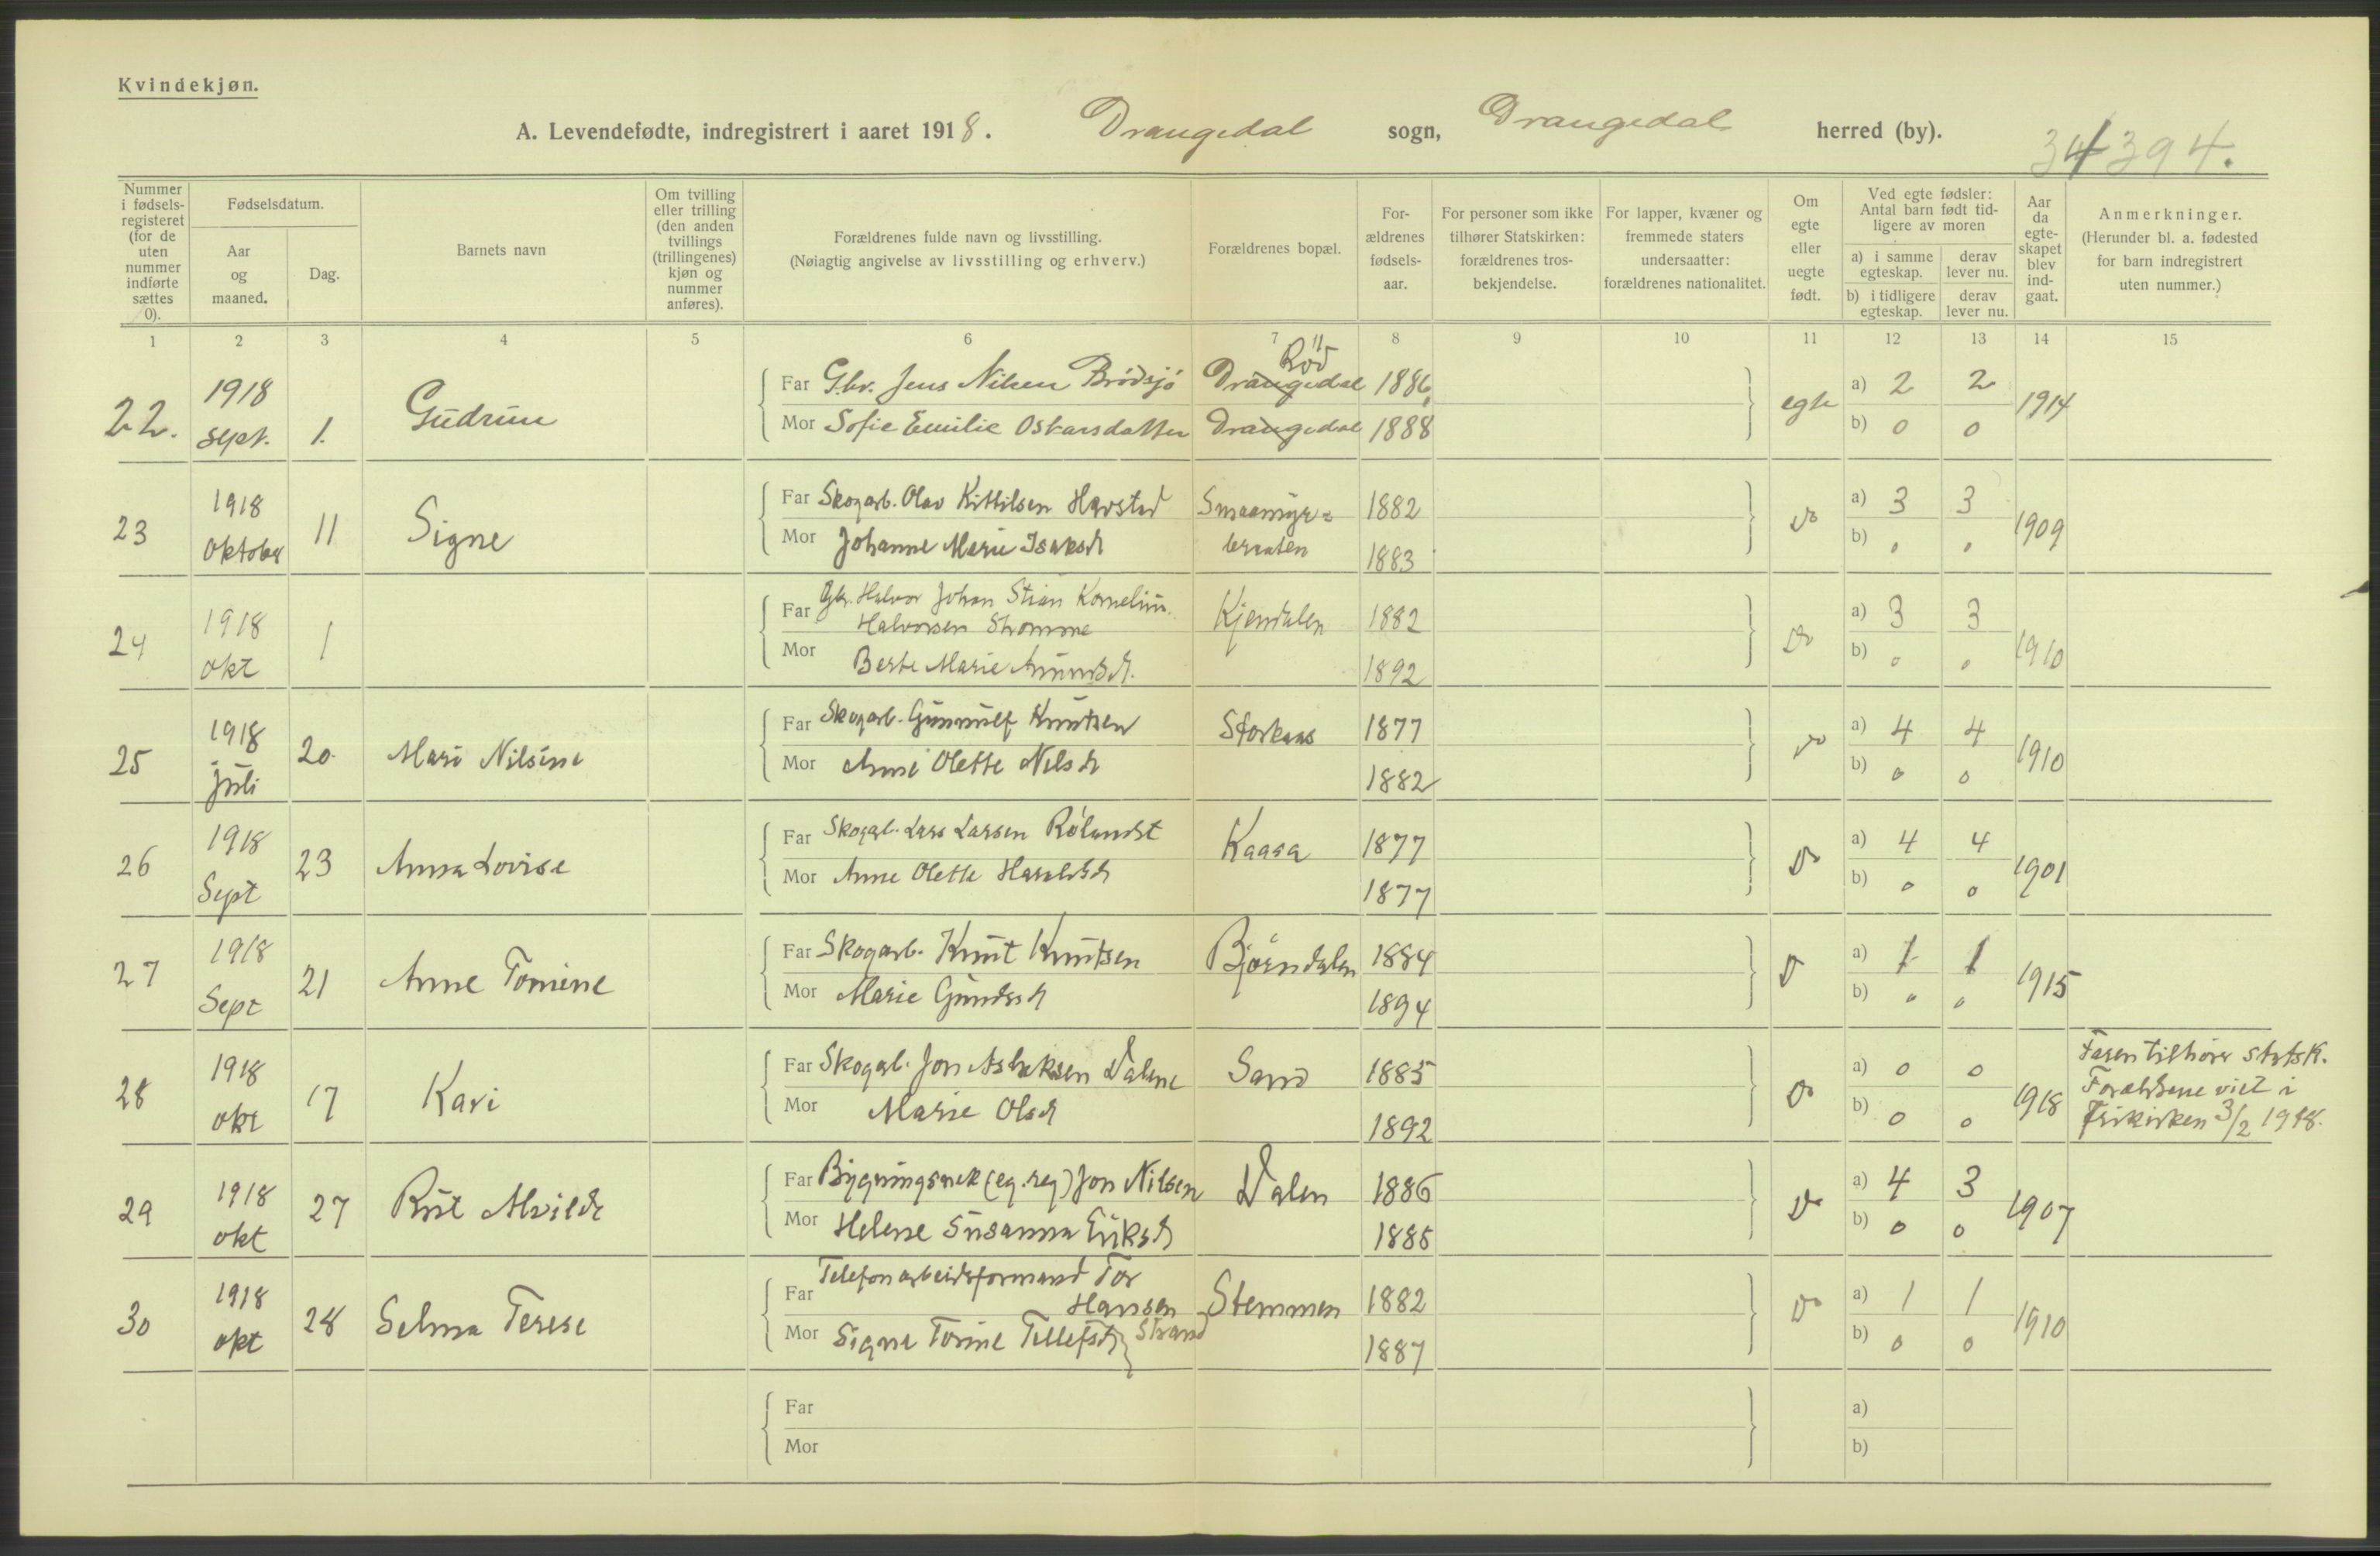 Kvindekjøn.
A. Levendefødte, indregistrert i aaret 1918. Drangedal sogn, Drangedal herred (by).
34394.
Nummer i fødsels-registeret (for de uten nummer indførte sættes 0).
Fødselsdatum.
Aar og maaned.
Dag.
Barnets navn
Om tvilling eller trilling (den anden tvillings (trillingenes) kjøn og nummer anføres).
Forældrenes fulde navn og livsstilling.
(Nøiagtig angivelse av livsstilling og erhverv.)
Forældrenes bopæl.
For-ældrenes fødsels-aar.
For personer som ikke tilhører Statskirken: forældrenes tros-bekjendelse.
For lapper, kvæner og fremmede staters undersaatter: forældrenes nationalitet.
Om egte eller uegte født.
Ved egte fødsler: Antal barn født tid-ligere av moren
a) i samme egteskap.
derav lever nu.
b) i tidligere egteskap.
derav lever nu.
Aar da egte-skapet blev ind-gaat.
Anmerkninger.
(Herunder bl. a. fødested for barn indregistrert uten nummer.)
1 2 3 4 5 6 7 8 9 10 11 12 13 14 15
22. 1918 sept. 1. Gudrun
Far Gbr. Jens Nilsen Brödsjö Drangedal Röd 1886 egte a) 2 2 1914
Mor Sofie Emilie Oskarsdatter Drangedal 1888 b) 0 0
23 1918 oktober 11 Signe
Far Skogarb. Olav Kittilsen Havstad Smaamyr= 1882 do a) 3 3 1909
Mor Johanne Marie Isaksd braaten 1883 b) 0 0
24 1918 okt 1
Far Gbr. Halvor Johan Stian Kornelius
Halvorsen Stromme Kjendalen 1882 do a) 3 3 1910
Mor Berte Marie Amundsd. 1892 b) 0 0
25 1918 juli 20. Mari Nilsine
Far Skogarb. Gunnulf Knutsen Storkaas 1877 do a) 4 4 1910
Mor Anne Olette Nilsd 1882 b) 0 0
26 1918 Sept 23 Anna Lovise
Far Skogarb. Lars Larsen Kaasa 1877 do a) 4 4 1901
Mor Anne Olette Haraldsd 1877 b) 0 0
27 1918 Sept 21 Anne Tomine
Far Skogarb. Knut Knutsen Bjørndalen 1884 do a) 1 1 1915
Mor Marie Gundersd 1894 b) 0 0
28 1918 okt 17 Kari
Far Skogarb. Jon Aslaksen Dalene Sand 1885 do a) 0 0 1918
Mor Marie Olsd 1892 b) 0 0
Faren tilhører statsk.
Foreldrene viet i
Frikirken 3/2 1918.
29 1918 okt 27 Rut Alvilde
Far Bygningsnek (eg. reg) Jon Nilsen Dalen 1886 do a) 4 3 1907
Mor Helene Susanna Eriksd 1885 b) 0 0
30 1918 okt 28 Selma Terese
Far Telefonarbeidsformand Tor
Hansen Stemmen 1882 do a) 1 1 1910
Mor Signe Torine Tellefsd } Strand 1887 b) 0 0
Far a)
Mor b)